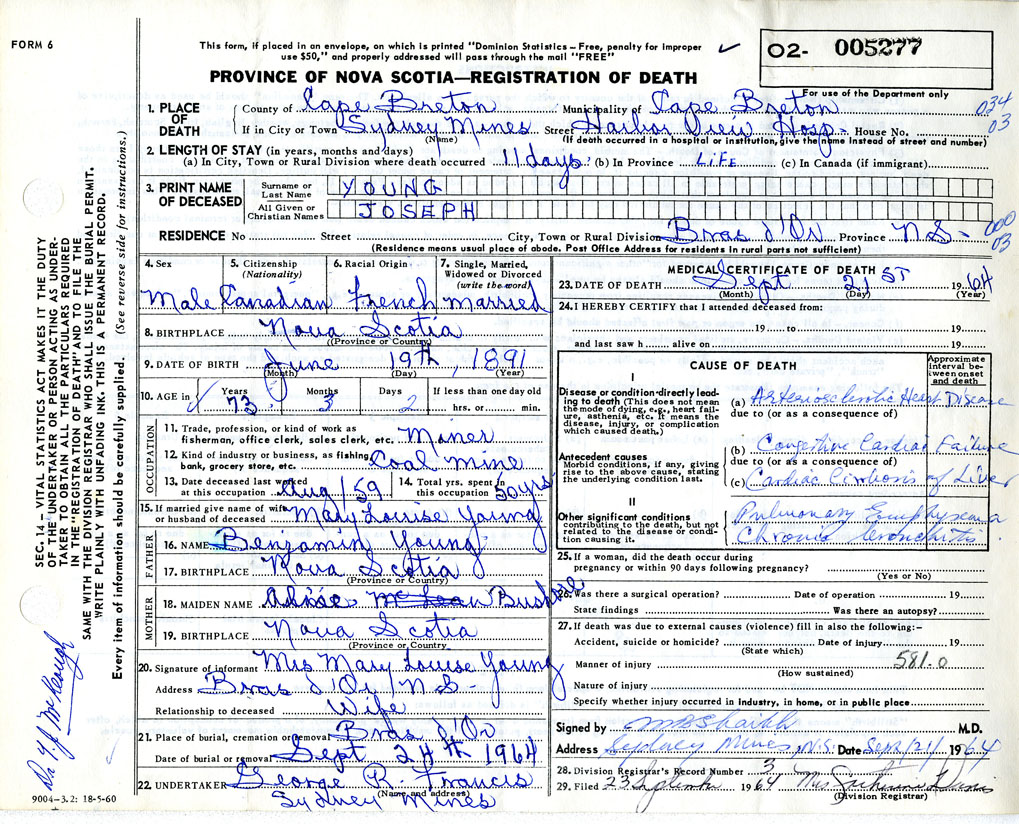 FORM 6
This form, if placed in an envelope, on which is printed "Dominion Statistics—Free, penalty for improper
use $50," and properly addressed will pass through the mail "FREE"
✓
O2- 005277
For use of the Department only
PROVINCE OF NOVA SCOTIA—REGISTRATION OF DEATH
034
03
1. PLACE OF DEATH
County of Cape Breton Municipality of Cape Breton
If in City or Town Sydney Mines Street Harbor View Hosp- House No.
(Name) (If death occurred in a hospital or institution, give the name instead of street and number)
2. LENGTH OF STAY (in years, months and days)
(a) In City, Town or Rural Division where death occurred 11 days. (b) In Province LIFE (c) In Canada (if immigrant)
3. PRINT NAME OF DECEASED
Surname or Last Name YOUNG
All Given or Christian Names JOSEPH
RESIDENCE No Street City, Town or Rural Division Bras d'Or Province N.S-
000
03
(Residence means usual place of abode. Post Office Address for residents in rural parts not sufficient)
4. Sex 5. Citizenship (Nationality) 6. Racial Origin 7. Single, Married, Widowed or Divorced (write the word)
Male Canadian French married
8. BIRTHPLACE Nova Scotia
(Province or Country)
9. DATE OF BIRTH June 19th, 1891
(Month) (Day) (Year)
10. AGE in Years 73 Months 3 Days 2 If less than one day old hrs. or min.
OCCUPATION
11. Trade, profession, or kind of work as
fisherman, office clerk, sales clerk, etc. Miner
12. Kind of industry or business, as fishing,
bank, grocery store, etc. Coal mine
13. Date deceased last worked at this occupation Aug/59
14. Total yrs. spent in this occupation 50 yrs
15. If married give name of wife
or husband of deceased Mary Louise Young
FATHER
16. NAME Benjamin Young
17. BIRTHPLACE Nova Scotia
(Province or Country)
MOTHER
18. MAIDEN NAME
19. BIRTHPLACE Nova Scotia
(Province or Country)
20. Signature of informant Mrs Mary Louise Young
Address Bras d'Or N.S-
Relationship to deceased Wife
21. Place of burial, cremation or removal Bras d'Or
Date of burial or removal Sept 24th 1964
22. UNDERTAKER George R. Francis
(Name and address)
Sydney Mines
MEDICAL CERTIFICATE OF DEATH
23. DATE OF DEATH Sept 21 ST 1964
(Month) (Day) (Year)
24. I HEREBY CERTIFY that I attended deceased from:
19 to 19
and last saw h alive on 19
CAUSE OF DEATH
Approximate interval between onset and death
I
Disease or condition directly leading to death (This does not mean
the mode of dying, e.g., heart failure, asthenia, etc. It means the
disease, injury, or complication
which caused death.)
(a) Arteriosclerotic Heart Disease
due to (or as a consequence of)
(b) Congestive Cardiac Failure
due to (or as a consequence of)
Antecedent causes
Morbid conditions, if any, giving
rise to the above cause, stating
the underlying condition last.
(c) Cardiac Cirrhosis of Liver
II
Other significant conditions
contributing to the death, but not
related to the disease or condition causing it.
Pulmonary Emphysema
Chronic Bronchitis
25. If a woman, did the death occur during
pregnancy or within 90 days following pregnancy?
(Yes or No)
26. Was there a surgical operation? Date of operation 19
State findings Was there an autopsy?
27. If death was due to external causes (violence) fill in also the following:—
Accident, suicide or homicide? Date of injury 19
(State which)
Manner of injury 581.0
(How sustained)
Nature of injury
Specify whether injury occurred in industry, in home, or in public place
Signed by M.D.
Address Sydney Mines, N.S. Date Sept/21/ 1964
28. Division Registrar's Record Number 3
29. Filed 23 1964 Mrs
(Division Registrar)
SEC. 14—VITAL STATISTICS ACT MAKES IT THE DUTY
OF THE UNDERTAKER OR PERSON ACTING AS UNDERTAKER TO OBTAIN ALL THE PARTICULARS REQUIRED
IN THE "REGISTRATION OF DEATH" AND TO FILE THE
SAME WITH THE DIVISION REGISTRAR WHO SHALL ISSUE THE BURIAL PERMIT.
WRITE PLAINLY WITH UNFADING INK. THIS IS A PERMANENT RECORD.
Every item of information should be carefully supplied. (See reverse side for instructions.)
9004-3.2: 18-5-60